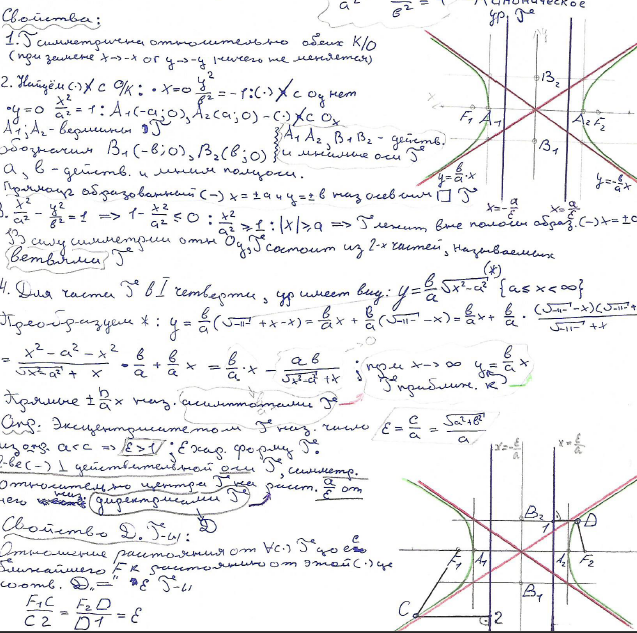 Каноническое
ур. Г
Свойства:
1. Г симметрична относительно обеих К/О
(при замене x→-x от y→-y ничего не меняется)
2. Найдём (·) X с О/К: · x=0 y²/в² = -1: (·) X с Oy нет
· y=0 x²/a² = 1: A₁(-a;0), A₂(a;0) - (·) X с Ox
A₁; A₂ - вершины Г
обозначия B₁(-в;0), B₂(в;0) A₁A₂, B₁B₂ - действ. и мнимые оси Г
a, в - действ. и мним полуоси.
Прямоуг образованный (-) x=±a и y=±в наз осевым □ Г
3. x²/a² - y²/в² = 1 => 1 - x²/a² ≤ 0 : x²/a² ≥ 1 : |x| ≥ a => Г лежит вне полосы образ. (-) x=±a
В силу симметрии отн Oy, Г состоит из 2-х частей, называемых
ветвями Г
4. Для части Г в I четверти, ур имеет вид: y = в/a √x²-a² (*) {a≤x<∞}
Преобразуем *: y = в/a (√-"- + x - x) = в/a x + в/a (√-"- - x) = в/a x + в/a · (√-"- - x)(√-"- + x) / √-"- + x
= x² - a² - x² / √x²-a² + x · в/a + в/a x = в/a · x - aв / √x²-a² + x ; при x→∞ y = в/a x
Г приближ. к
Прямые ± b/a x наз. асимптотами Г
Опр: Эксцентриситетом Г наз. число ε = c/a = √a²+в² / a
из опр. a<c => ε>1 ; ε хар. форму Г.
2-ве (-) ⊥ действительной оси Г, симметр.
относительно центра Г на расст. a/ε от
него наз директрисами Г
D
Свойство D. Г-ы:
Отношение расстояния от ∀(·) Г до её
ближайшего F к расстоянию от этой (·) до
соотв. D „=" ε Г-ы
F₁C / C2 = F₂D / D1 = ε
F₁ A₁ A₂ F₂
B₂
B₁
y = в/a · x
y = -в/a x
x = -a/ε
x = a/ε
B₂ 1 D
F₁ A₁ A₂ F₂
B₁
C 2